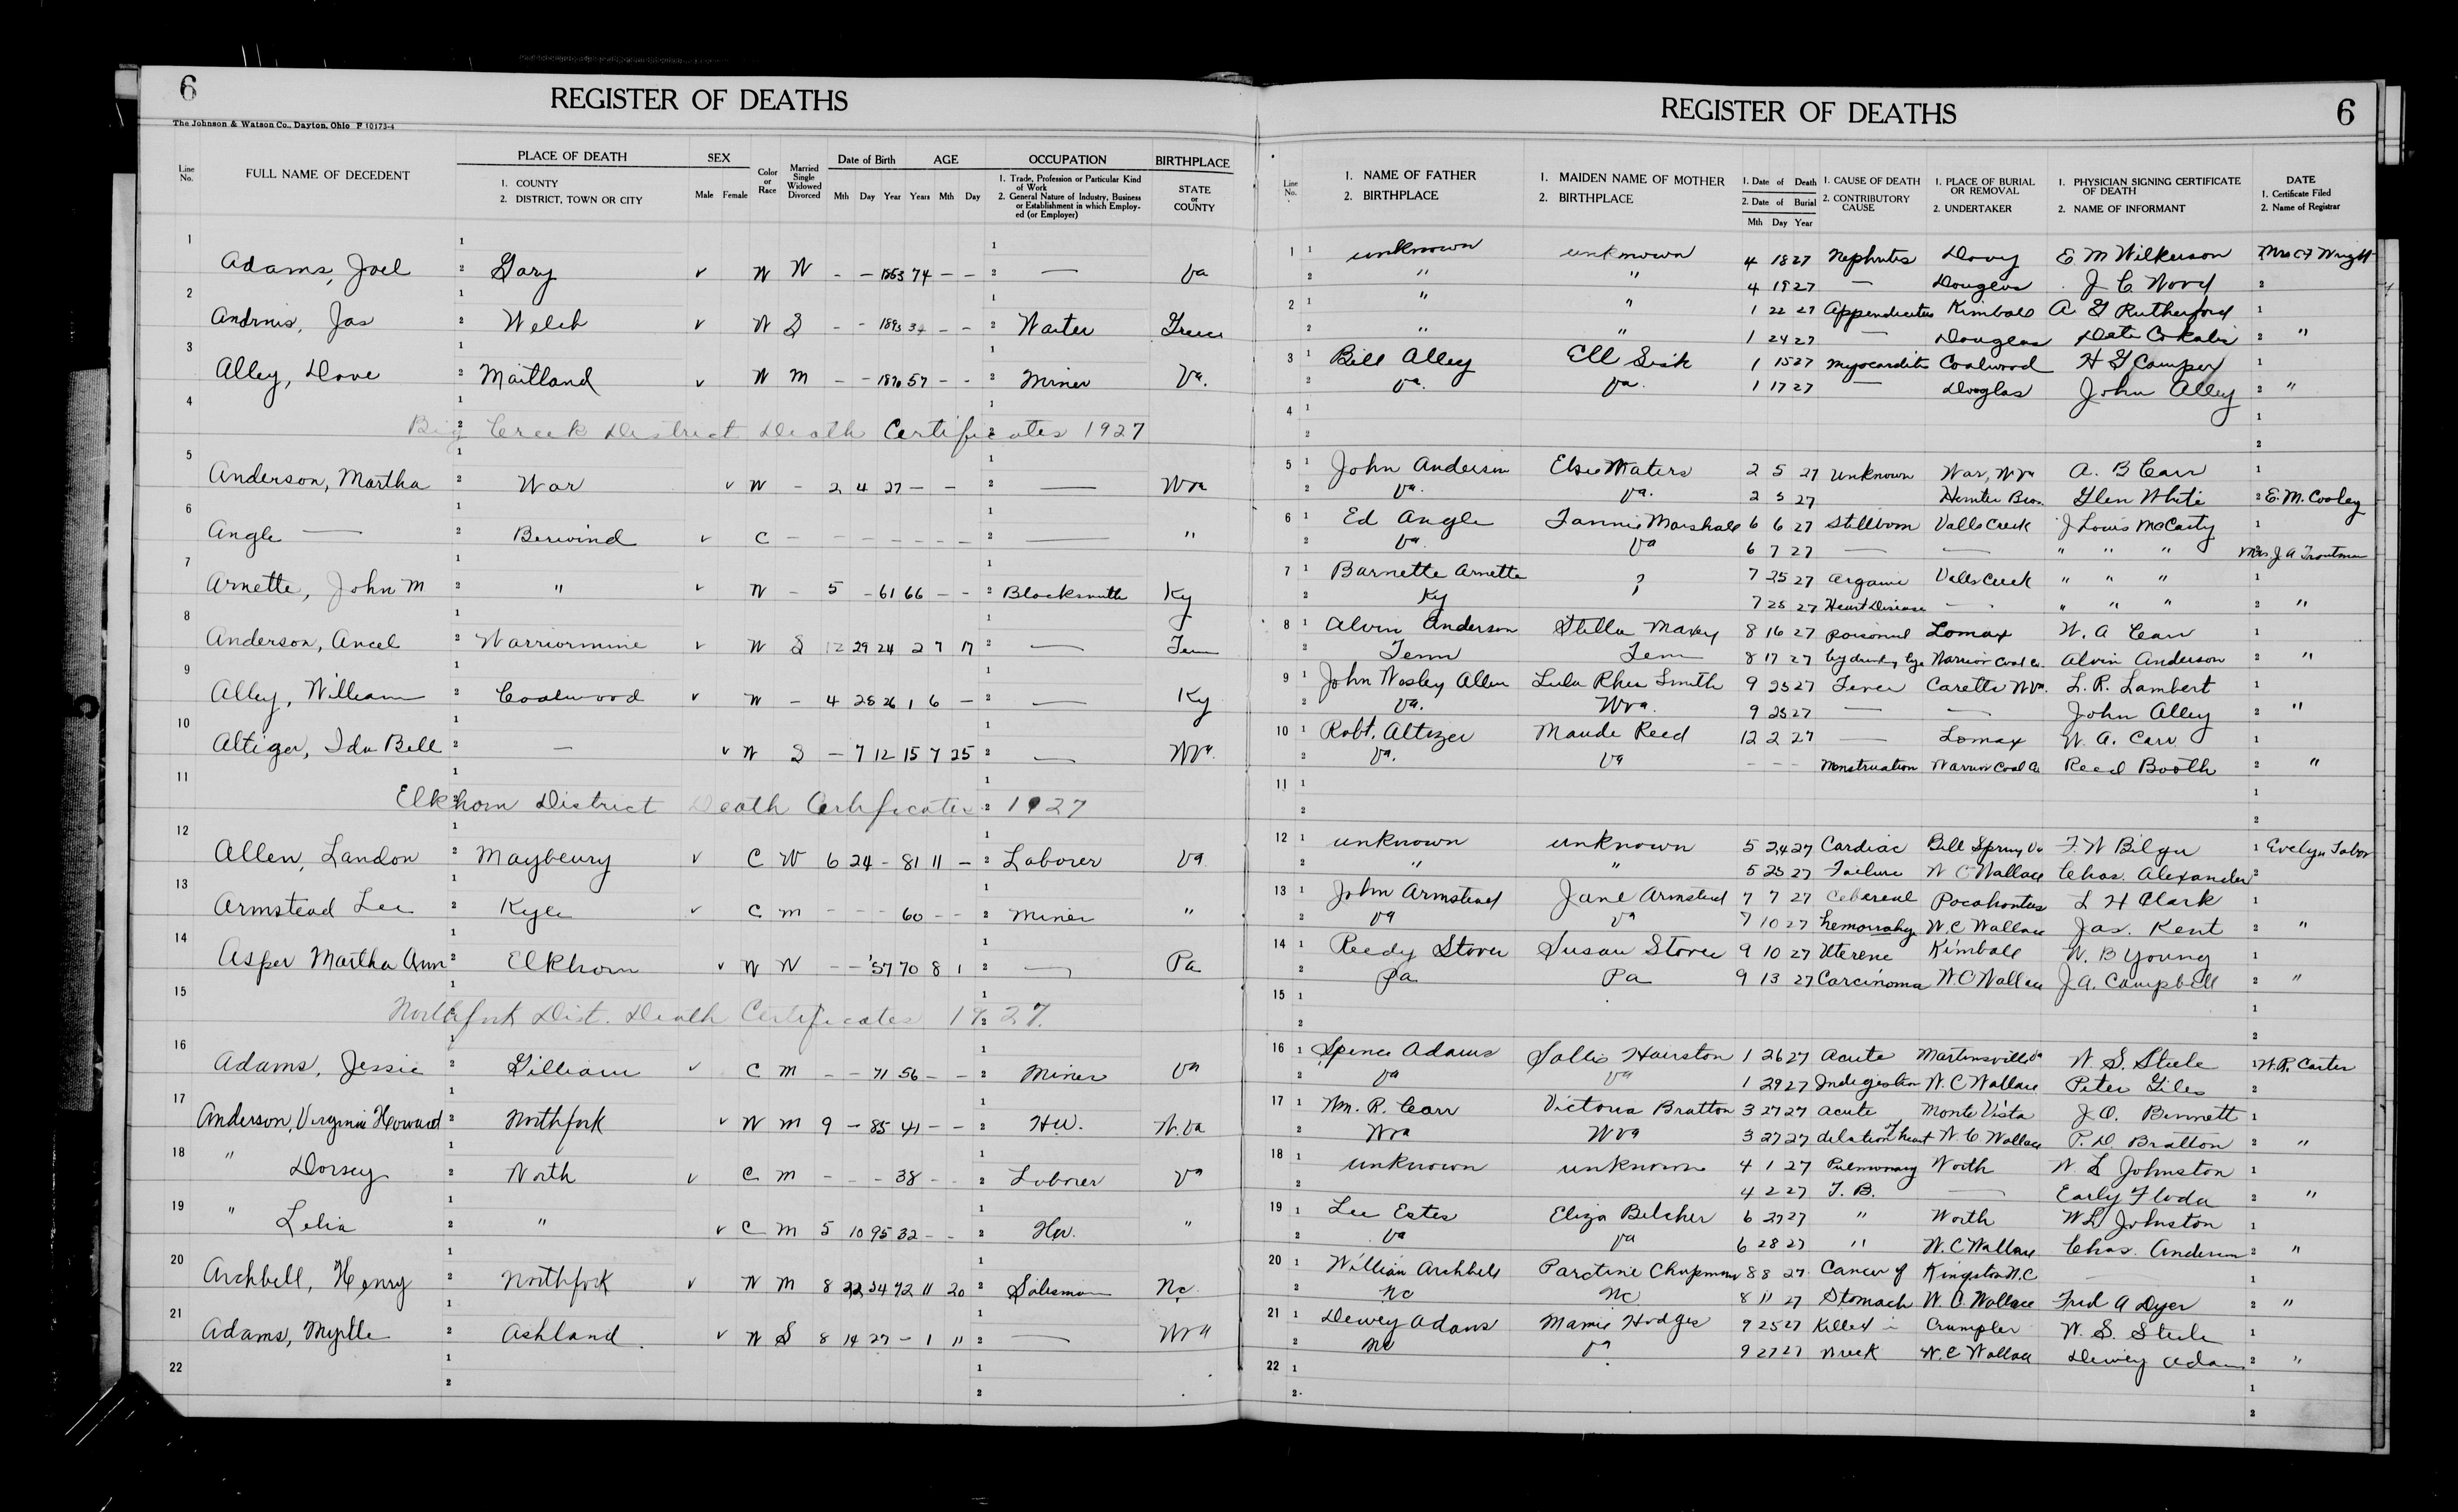 6
REGISTER OF DEATHS
The Johnson & Watson Co., Dayton, Ohio F 10173-4
Line No. FULL NAME OF DECEDENT PLACE OF DEATH 1. COUNTY 2. DISTRICT, TOWN OR CITY SEX Male Female Color or Race Married Single Widowed Divorced Date of Birth Mth Day Year AGE Years Mth Day OCCUPATION 1. Trade, Profession or Particular Kind of Work 2. General Nature of Industry, Business or Establishment in which Employed (or Employer) BIRTHPLACE STATE or COUNTY
1 Adams, Joel Gary v W W - - 1853 74 - - — Va
2 Andrnis, Jas Welch v W S - - 1893 34 - - Waiter Greece
3 Alley, Dave Maitland v W M - - 1870 57 - - Miner Va.
4 Big Creek District Death Certificates 1927
5 Anderson, Martha War v W - 2 4 27 - - — Wva
6 Angle — Berwind v C - - - - - - - — "
7 Arnette, John M " v W - 5 - 61 66 - - Blacksmith Ky
8 Anderson, Ancel Warriormine v W S 12 29 24 2 7 17 — Tenn
9 Alley, William Coalwood v W - 4 25 26 1 6 - — Ky
10 Altiger, Ida Bell — v W S - 7 12 15 7 25 — Wva.
11 Elkhorn District Death Certificates 1927
12 Allen, Landon Maybeury v C W 6 24 - 81 11 - Laborer Va
13 Armstead Lee Kyle v C m - - - 60 - - Miner "
14 Asper Martha Ann Elkhorn v W W - - '57 70 8 1 — Pa
15 Northfork Dist. Death Certificates 1927.
16 Adams, Jessie Gilliam v C M - - 71 56 - - Miner Va
17 Anderson, Virginia Howard Northfork v W m 9 - 85 41 - - HW. W.Va
18 " Dorsey North v C m - - - 38 - - Laborer Va
19 " Lelia " v C m 5 10 95 32 - - Hw. "
20 Archbell, Henry Northfork v W M 8 22 54 72 11 20 Salesman Nc.
21 Adams, Myrtle Ashland v W S 8 14 27 - 1 11 — Wva
22
REGISTER OF DEATHS
6
Line No. 1. NAME OF FATHER 2. BIRTHPLACE 1. MAIDEN NAME OF MOTHER 2. BIRTHPLACE 1. Date of Death 2. Date of Burial Mth Day Year 1. CAUSE OF DEATH 2. CONTRIBUTORY CAUSE 1. PLACE OF BURIAL OR REMOVAL 2. UNDERTAKER 1. PHYSICIAN SIGNING CERTIFICATE OF DEATH 2. NAME OF INFORMANT DATE 1. Certificate Filed 2. Name of Registrar
1 unknown unknown 4 18 27 Nephritis Davy E. M Wilkerson Mrs CF Wright
" " 4 19 27 — Douglas J C Wood
2 " " 1 22 27 Appendicitus Kimball A G Rutherford
" " 1 24 27 — Douglas "
3 Bill Alley Ell Sisk 1 15 27 Myocarditis Coalwood H G Camper
Va. Va. 1 17 27 — Douglas John Alley "
4
5 John Anderson Elsie Waters 2 5 27 Unknown War, Wva A. B Carr
Va. Va. 2 5 27 Hunter Bros. Glen White E. M. Cooley
6 Ed Angle Fannie Marshall 6 6 27 Stillborn Valls Creek J Louis McCarty
Va. Va 6 7 27 — — " " " Mrs. J A Troutman
7 Barnette Arnette ? 7 25 27 Organic Valls Creek " " "
Ky ? 7 25 27 Heart Disease — " " " "
8 Alvin Anderson Stella Maxey 8 16 27 Poisoned Lomax W. A Carr
Tenn Tenn 8 17 27 by drinking lye Warrior Coal Co. Alvin Anderson "
9 John Wesley Allen Lula Rhea Smith 9 25 27 Fever Caretta Wva. L. R. Lambert
Va. Wva. 9 25 27 — — John Alley "
10 Robt. Altizer Maude Reed 12 2 27 — Lomax W. A. Carr
Va. Va - - - Menstruation Warrior Coal Co Reed Booth "
11
12 unknown unknown 5 24 27 Cardiac Bell Spring Va F. W Bilger Evelyn Tabor
" " 5 25 27 Failure W C Wallace Chas. Alexander
13 John Armstead Jane Armstead 7 7 27 Cebareal Pocahontas L H Clark
va va 7 10 27 hemorrahge W. C Wallace Jas. Kent "
14 Reedy Stover Susan Stover 9 10 27 Uterene Kimball W. B Young
Pa Pa 9 13 27 Carcinoma W. C Wallace J. A. Campbell "
15
16 Spence Adams Sallie Hairston 1 26 27 Acute Martinsville Va W. S. Steele W. R. Carter
Va Va 1 29 27 Indigestion W. C Wallace Peter Giles
17 Wm. R. Carr Victoria Bratton 3 27 27 Acute Monte Vista J. O. Bennett
Wva Wva 3 27 27 dilation of heart W. C Wallace P. D Bratton "
18 unknown unknown 4 1 27 Pulmonary Worth W. L Johnston
4 2 27 T. B. — Early Floda "
19 Lee Estes Eliza Belcher 6 27 27 " Worth W L Johnston
Va Va 6 28 27 " W. C Wallace Chas. Anderson "
20 William Archbell Parctine Chapman 8 8 27 Cancer of Kingston N.C —
NC NC 8 11 27 Stomach W. C. Wallace Fred A Dyer "
21 Dewey Adams Mamie Hodges 9 25 27 Killed in Crumpler W. S. Steele
NC Va 9 27 27 Wreck W. C Wallace Dewey Adams "
22